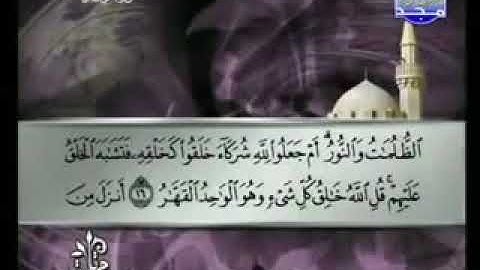 المجد
ٱلظُّلُمَٰتُ وَٱلنُّورُ ۗ أَمْ جَعَلُوا۟ لِلَّهِ شُرَكَآءَ خَلَقُوا۟ كَخَلْقِهِۦ فَتَشَٰبَهَ ٱلْخَلْقُ
عَلَيْهِمْ ۚ قُلِ ٱللَّهُ خَٰلِقُ كُلِّ شَىْءٍ وَهُوَ ٱلْوَٰحِدُ ٱلْقَهَّٰرُ ١٦ أَنزَلَ مِنَ